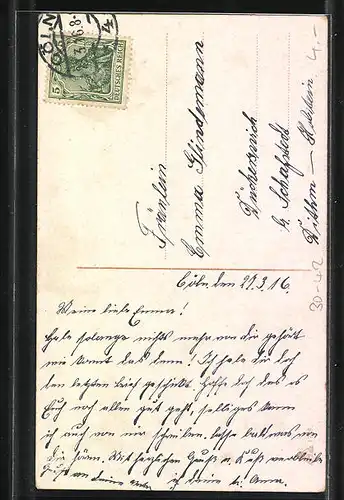 CÖLN
5
DEUTSCHES REICH
Fräulein
Emma Glindemann
b. Schafstedt
Dithm – Holstein
4.–
30-42
Cöln, den 29.3.16.
Meine liebe Emma!
Habe solange nichts mehr von dir gehört
wie kommt das denn? Ich habe dir doch
den letzten Brief geschickt. Hoffe doch das es
Euch noch allen gut geht, selbiges kann
ich auch von mir schreiben. laß bald was von
dir hören. Mit herzlichen Gruß u. Kuß verbleibe
ich deine Anna.